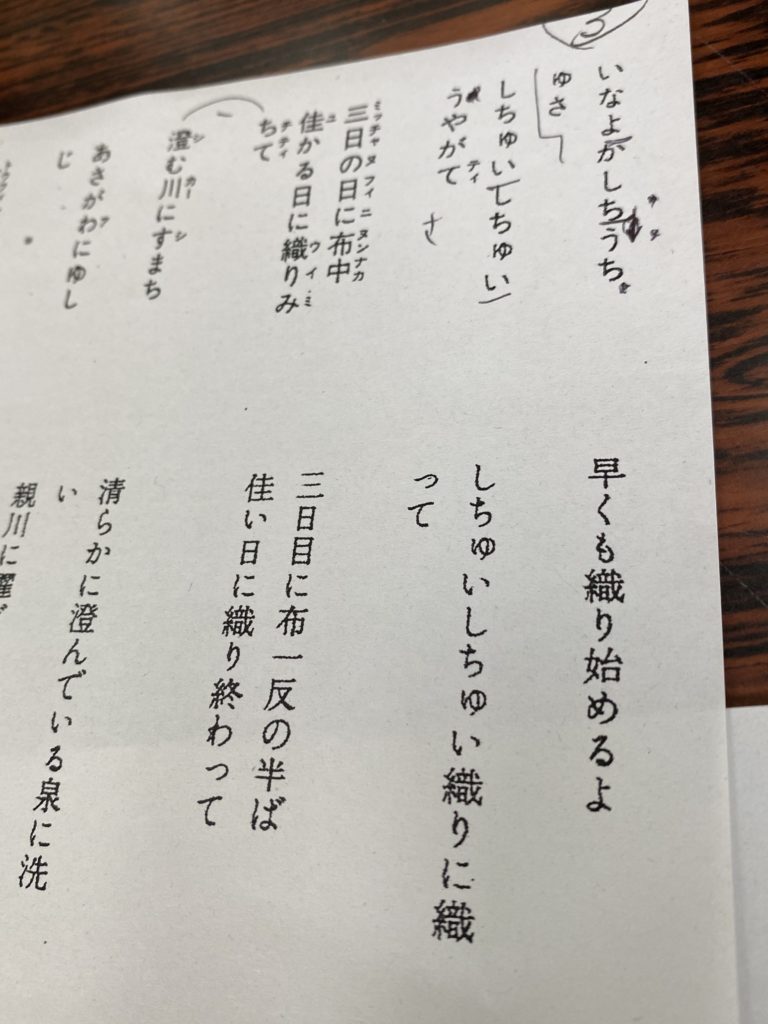 3
いなよがしちうち
ゆさ
しちゅいしちゅい
うやがて
さ
三日の日に布中
佳かる日に織りみ
ちて
澄む川にすまち
あさがわにゆし
じ
早くも織り始めるよ
しちゅいしちゅい織りに織
って
三日目に布一反の半ば
佳い日に織り終わって
清らかに澄んでいる泉に洗
い
親川に濯